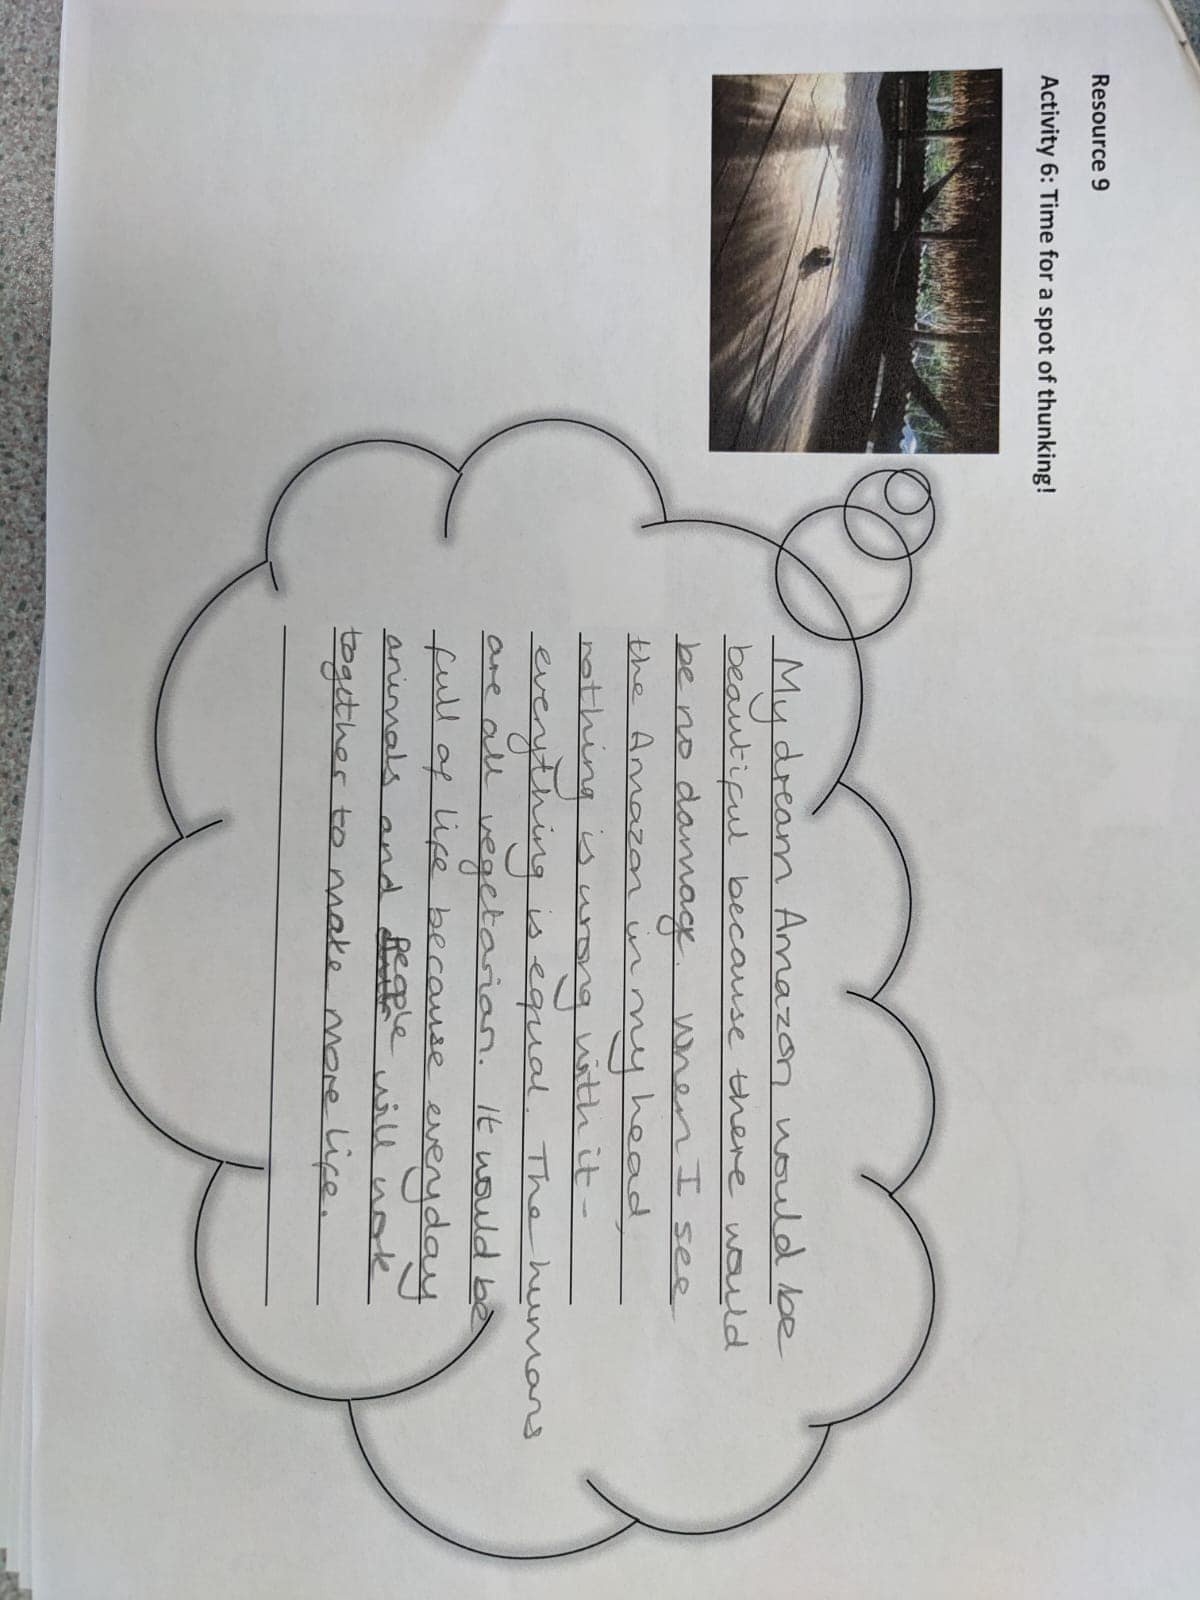 Resource 9
Activity 6: Time for a spot of thunking!
My dream Amazon would be
beautiful because there would
be no damage. When I see
the Amazon in my head,
nothing is wrong with it -
everything is equal. The humans
are all vegetarian. It would be
full of life because everyday
animals and people will work
together to make more life.